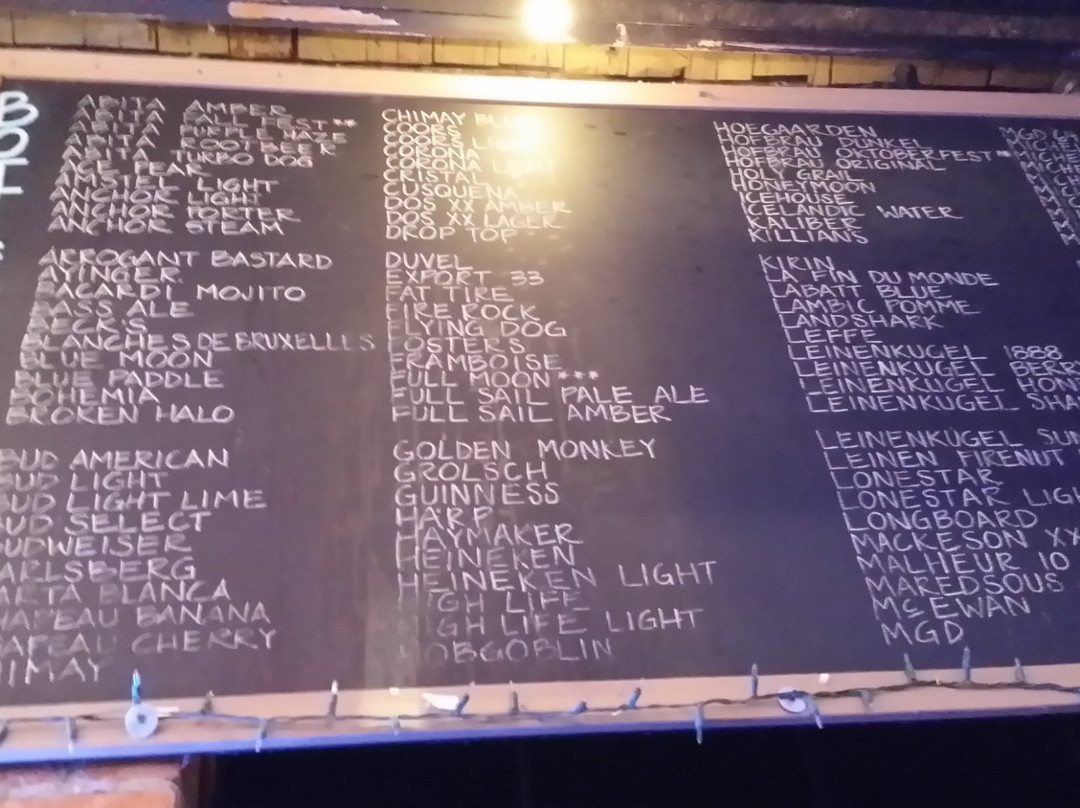 BOT
ABITA AMBER
ABITA FALL FEST**
ABITA PURPLE HAZE
ABITA ROOTBEER
ABITA TURBO DOG
ACE PEAR
AMSTEL LIGHT
ANCHOR LIGHT
ANCHOR PORTER
ANCHOR STEAM
ARROGANT BASTARD
AYINGER
BACARDI MOJITO
BASS ALE
BECK'S
BLANCHES DE BRUXELLES
BLUE MOON
BLUE PADDLE
BOHEMIA
BROKEN HALO
BUD AMERICAN
BUD LIGHT
BUD LIGHT LIME
BUD SELECT
BUDWEISER
ARLSBERG
ARTA BLANCA
HAPEAU BANANA
HAPEAU CHERRY
HIMAY
CHIMAY BLUE
COORS
COORS LIGHT
CORONA
CORONA LIGHT
CRISTAL
CUSQUENA
DOS XX AMBER
DOS XX LAGER
DROP TOP
DUVEL
EXPORT 33
FAT TIRE
FIRE ROCK
FLYING DOG
FOSTERS
FRAMBOISE
FULL MOON***
FULL SAIL PALE ALE
FULL SAIL AMBER
GOLDEN MONKEY
GROLSCH
GUINNESS
HARP
HAYMAKER
HEINEKEN
HEINEKEN LIGHT
HIGH LIFE
HIGH LIFE LIGHT
HOBGOBLIN
HOEGAARDEN
HOFBRAU DUNKEL
HOFBRAU OKTOBERFEST**
HOFBRAU ORIGINAL
HOLY GRAIL
HONEYMOON
ICEHOUSE
ICELANDIC WATER
KALIBER
KILLIAN'S
KIRIN
LA FIN DU MONDE
LABATT BLUE
LAMBIC POMME
LANDSHARK
LEFFE
LEINENKUGEL 1888
LEINENKUGEL BERRY
LEINENKUGEL HON
LEINENKUGEL SHA
LEINENKUGEL SUN
LEINEN FIRENUT
LONESTAR
LONESTAR LIGH
LONGBOARD
MACKESON XX
MALHEUR 10
MAREDSOUS
McEWAN
MGD
MGD 64